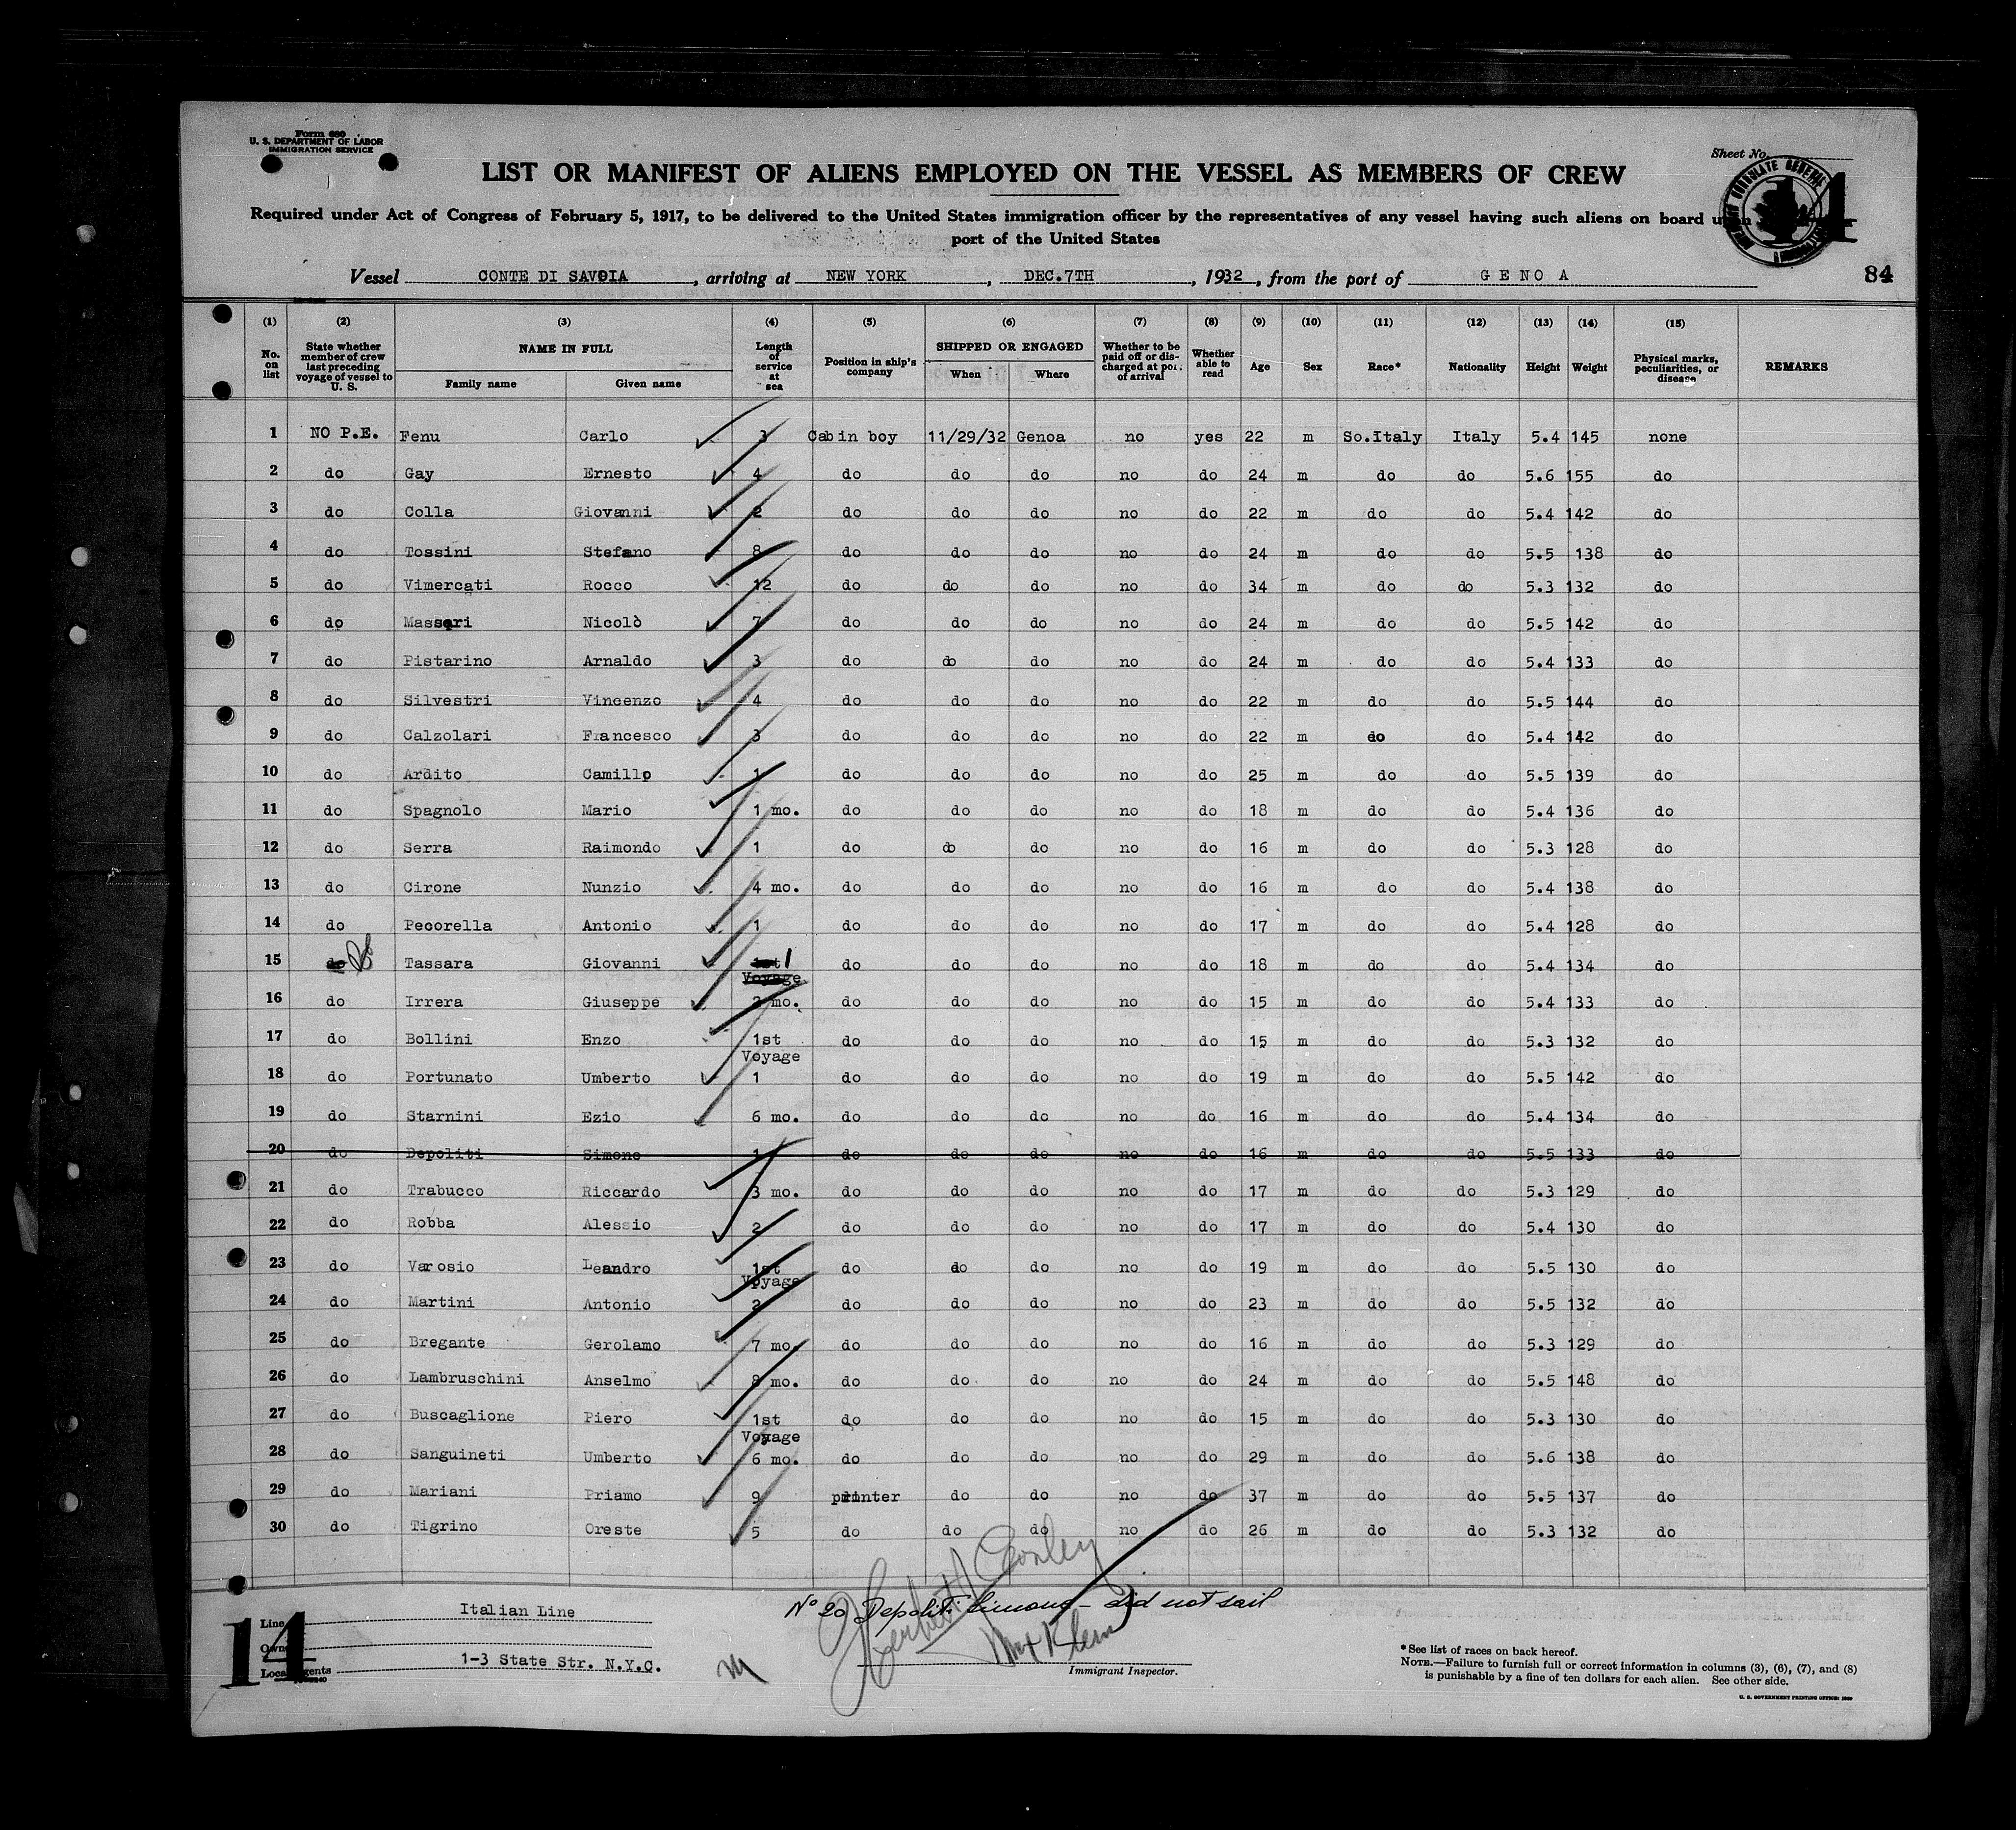 Form 680
U. S. DEPARTMENT OF LABOR
IMMIGRATION SERVICE
Sheet No.
4
LIST OR MANIFEST OF ALIENS EMPLOYED ON THE VESSEL AS MEMBERS OF CREW
Required under Act of Congress of February 5, 1917, to be delivered to the United States immigration officer by the representatives of any vessel having such aliens on board upon
port of the United States
Vessel CONTE DI SAVOIA, arriving at NEW YORK, DEC.7TH, 1932, from the port of GENOA
84
(1) (2) (3) (4) (5) (6) (7) (8) (9) (10) (11) (12) (13) (14) (15)
No. on list | State whether member of crew last preceding voyage of vessel to U. S. | NAME IN FULL Family name Given name | Length of service at sea | Position in ship's company | SHIPPED OR ENGAGED When Where | Whether to be paid off or discharged at port of arrival | Whether able to read | Age | Sex | Race* | Nationality | Height | Weight | Physical marks, peculiarities, or disease | REMARKS
1 NO P.E. Fenu Carlo 3 Cabin boy 11/29/32 Genoa no yes 22 m So.Italy Italy 5.4 145 none
2 do Gay Ernesto 4 do do do no do 24 m do do 5.6 155 do
3 do Colla Giovanni 2 do do do no do 22 m do do 5.4 142 do
4 do Tossini Stefano 8 do do do no do 24 m do do 5.5 138 do
5 do Vimercati Rocco 12 do do do no do 34 m do do 5.3 132 do
6 do Massari Nicolò 7 do do do no do 24 m do do 5.5 142 do
7 do Pistarino Arnaldo 3 do do do no do 24 m do do 5.4 133 do
8 do Silvestri Vincenzo 4 do do do no do 22 m do do 5.5 144 do
9 do Calzolari Francesco 3 do do do no do 22 m do do 5.4 142 do
10 do Ardito Camillo 1 do do do no do 25 m do do 5.5 139 do
11 do Spagnolo Mario 1 mo. do do do no do 18 m do do 5.4 136 do
12 do Serra Raimondo 1 do do do no do 16 m do do 5.3 128 do
13 do Cirone Nunzio 4 mo. do do do no do 16 m do do 5.4 138 do
14 do Pecorella Antonio 1 do do do no do 17 m do do 5.4 128 do
15 do Tassara Giovanni 1st 1 do do do no do 18 m do do 5.4 134 do
Voyage
16 do Irrera Giuseppe 2 mo. do do do no do 15 m do do 5.4 133 do
17 do Bollini Enzo 1st do do do no do 15 m do do 5.3 132 do
Voyage
18 do Portunato Umberto 1 do do do no do 19 m do do 5.5 142 do
19 do Starnini Ezio 6 mo. do do do no do 16 m do do 5.4 134 do
20 do Depoliti Simone 1 do do do no do 16 m do do 5.5 133 do
21 do Trabucco Riccardo 3 mo. do do do no do 17 m do do 5.3 129 do
22 do Robba Alessio 2 do do do no do 17 m do do 5.4 130 do
23 do Varosio Leandro 1st do do do no do 19 m do do 5.5 130 do
Voyage
24 do Martini Antonio 2 do do do no do 23 m do do 5.5 132 do
25 do Bregante Gerolamo 7 mo. do do do no do 16 m do do 5.3 129 do
26 do Lambruschini Anselmo 8 mo. do do do no do 24 m do do 5.5 148 do
27 do Buscaglione Piero 1st do do do no do 15 m do do 5.3 130 do
Voyage
28 do Sanguineti Umberto 6 mo. do do do no do 29 m do do 5.6 138 do
29 do Mariani Priamo 9 printer do do no do 37 m do do 5.5 137 do
30 do Tigrino Oreste 5 do do do no do 26 m do do 5.3 132 do
Nº 20 Depoliti Simone - did not sail
Line Italian Line
Owners
Local Agents 1-3 State Str. N.Y.C.
14
Immigrant Inspector.
*See list of races on back hereof.
NOTE.—Failure to furnish full or correct information in columns (3), (6), (7), and (8)
is punishable by a fine of ten dollars for each alien. See other side.
U. S. GOVERNMENT PRINTING OFFICE: